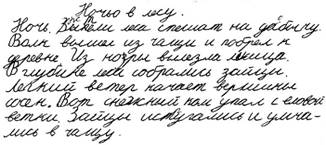 Ночью в лесу.
Ночь. Звери леса спешат на добычу.
Волк вышел из чащи и побрел к
деревне. Из норы вылезла лисица.
В глубине леса собрались зайцы.
Легкий ветер качает вершины
сосен. Вот снежный ком упал с еловой
ветки. Зайцы испугались и умча-
лись в чащу.